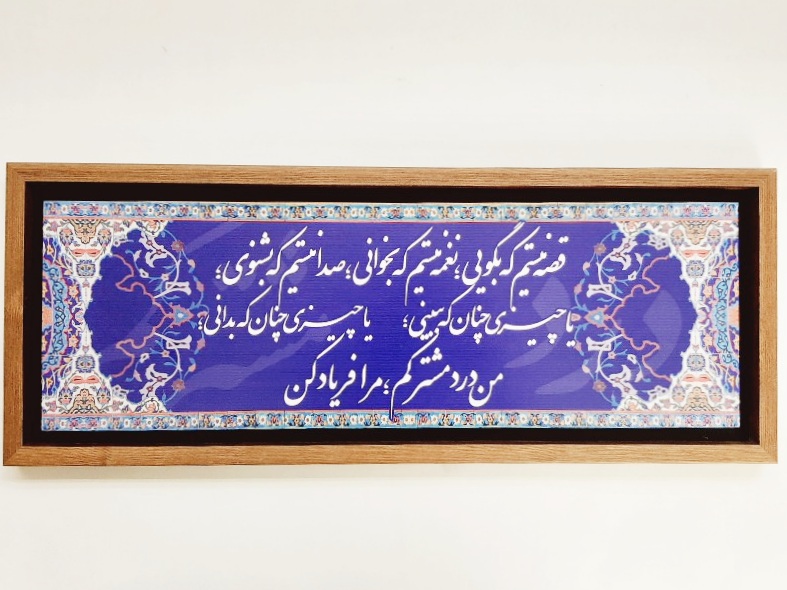 قصه نیستم که بگویی؛ نغمه نیستم که بخوانی؛ صدا نیستم که بشنوی؛
یا چیزی چنان که ببینی؛ یا چیزی چنان که بدانی؛
من درد مشترکم؛ مرا فریاد کن